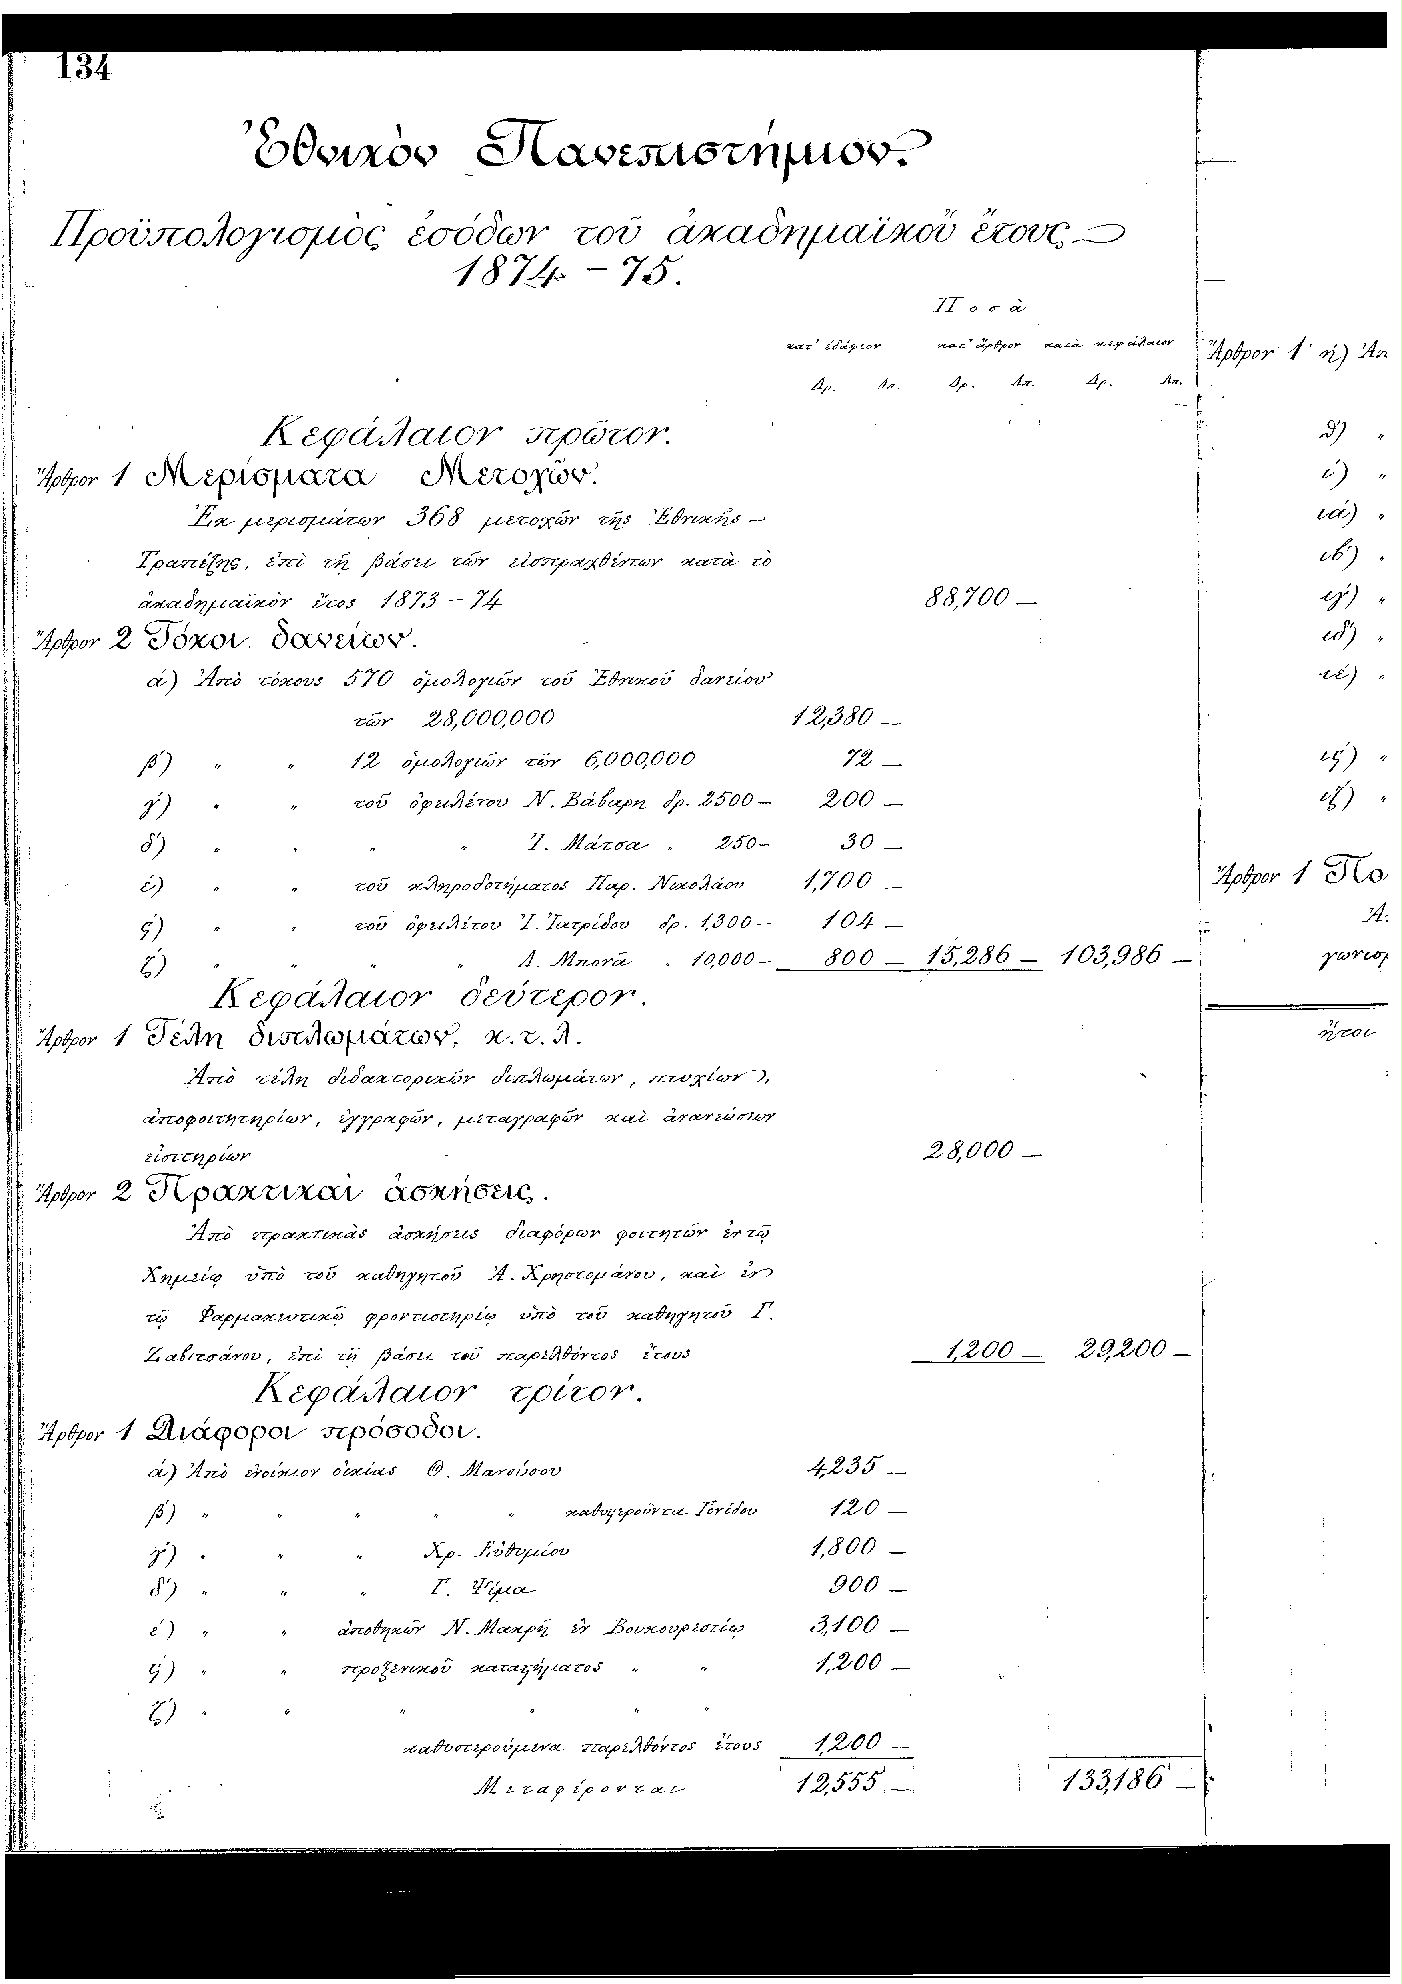 134
Ἐθνικὸν Πανεπιστήμιον.
Προϋπολογισμὸς ἐσόδων τοῦ ἀκαδημαϊκοῦ ἔτους
1874 - 75.
Ποσὰ
κατ' ἐδάφιον κατ' ἄρθρον κατὰ κεφάλαιον
Δρ. Λπ. Δρ. Λπ. Δρ. Λπ.
Κεφάλαιον πρῶτον.
Ἄρθρον 1 Μερίσματα Μετοχῶν.
Ἐκ μερισμάτων 368 μετοχῶν τῆς Ἐθνικῆς
Τραπέζης, ἐπὶ τῇ βάσει τῶν εἰσπραχθέντων κατὰ τὸ
ἀκαδημαϊκὸν ἔτος 1873 - 74 88,700 —
Ἄρθρον 2 Τόκοι δανείων.
α') Ἀπὸ τόκους 570 ὁμολογιῶν τοῦ Ἐθνικοῦ δανείου
τῶν 28,000,000 12,380 —
β') " " 12 ὁμολογιῶν τῶν 6,000,000 72 —
γ') " " τοῦ ὀφειλέτου Ν. Βάβαρη δρ. 2500 — 200 —
δ') " " " " Ἰ. Μάτσα " 250 — 30 —
ε') " " τοῦ κληροδοτήματος Παρ. Νικολάου 1,700 —
ς') " " τοῦ ὀφειλέτου Ἰ. Ἰατρίδου δρ. 1,300 — 104 —
ζ') " " " " Δ. Μπονᾶ " 10,000 — 800 — 15,286 — 103,986 —
Κεφάλαιον δεύτερον.
Ἄρθρον 1 Τέλη διπλωμάτων, κ.τ.λ.
Ἀπὸ τέλη διδακτορικῶν διπλωμάτων, πτυχίων,
ἀποφοιτητηρίων, ἐγγραφῶν, μεταγραφῶν καὶ ἀνανεώσεων
εἰσιτηρίων 28,000 —
Ἄρθρον 2 Πρακτικαὶ ἀσκήσεις.
Ἀπὸ πρακτικὰς ἀσκήσεις διαφόρων φοιτητῶν ἐν τῷ
Χημείῳ ὑπὸ τοῦ καθηγητοῦ Ἀ. Χρηστομάνου, καὶ ἐν
τῷ Φαρμακευτικῷ φροντιστηρίῳ ὑπὸ τοῦ καθηγητοῦ Γ.
Ζαβιτσάνου, ἐπὶ τῇ βάσει τοῦ παρελθόντος ἔτους 1,200 — 29,200 —
Κεφάλαιον τρίτον.
Ἄρθρον 1 Διάφοροι πρόσοδοι.
α') Ἀπὸ ἐνοίκιον οἰκίας Θ. Μανούσου 4,235 —
β') " " " " " 120 —
γ') " " " Χρ. Εὐθυμίου 1,800 —
δ') " " " Γ. Ψύμα 900 —
ε') " " ἀποθηκῶν Ν. Μακρῆ ἐν Βουκουρεστίῳ 3,100 —
ς') " " προξενικοῦ καταστήματος " " 1,200 —
ζ') " " " " " "
καθυστερούμενα παρελθόντος ἔτους 1,200 —
Μεταφέρονται 12,555 — 133,186 —
Ἄρθρον 1 η') Ἀπ
θ') "
ι') "
ια') "
ιβ') "
ιγ') "
ιδ') "
ιε') "
ις') "
ιζ') "
Ἄρθρον 1 Πο
Ἀ
γωνισ
ἤτοι